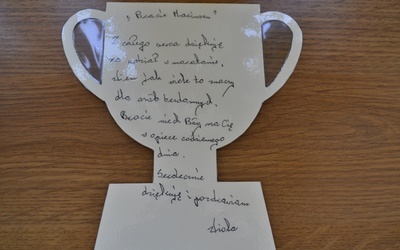 "Bracie Marcinie"
Z całego serca dziękuję
za udział w maratonie,
wiem jak wiele to znaczy
dla osób bezdomnych.
Bracie niech Bóg ma Cię
w opiece codziennego
dnia.
Serdecznie
dziękuję i pozdrawiam